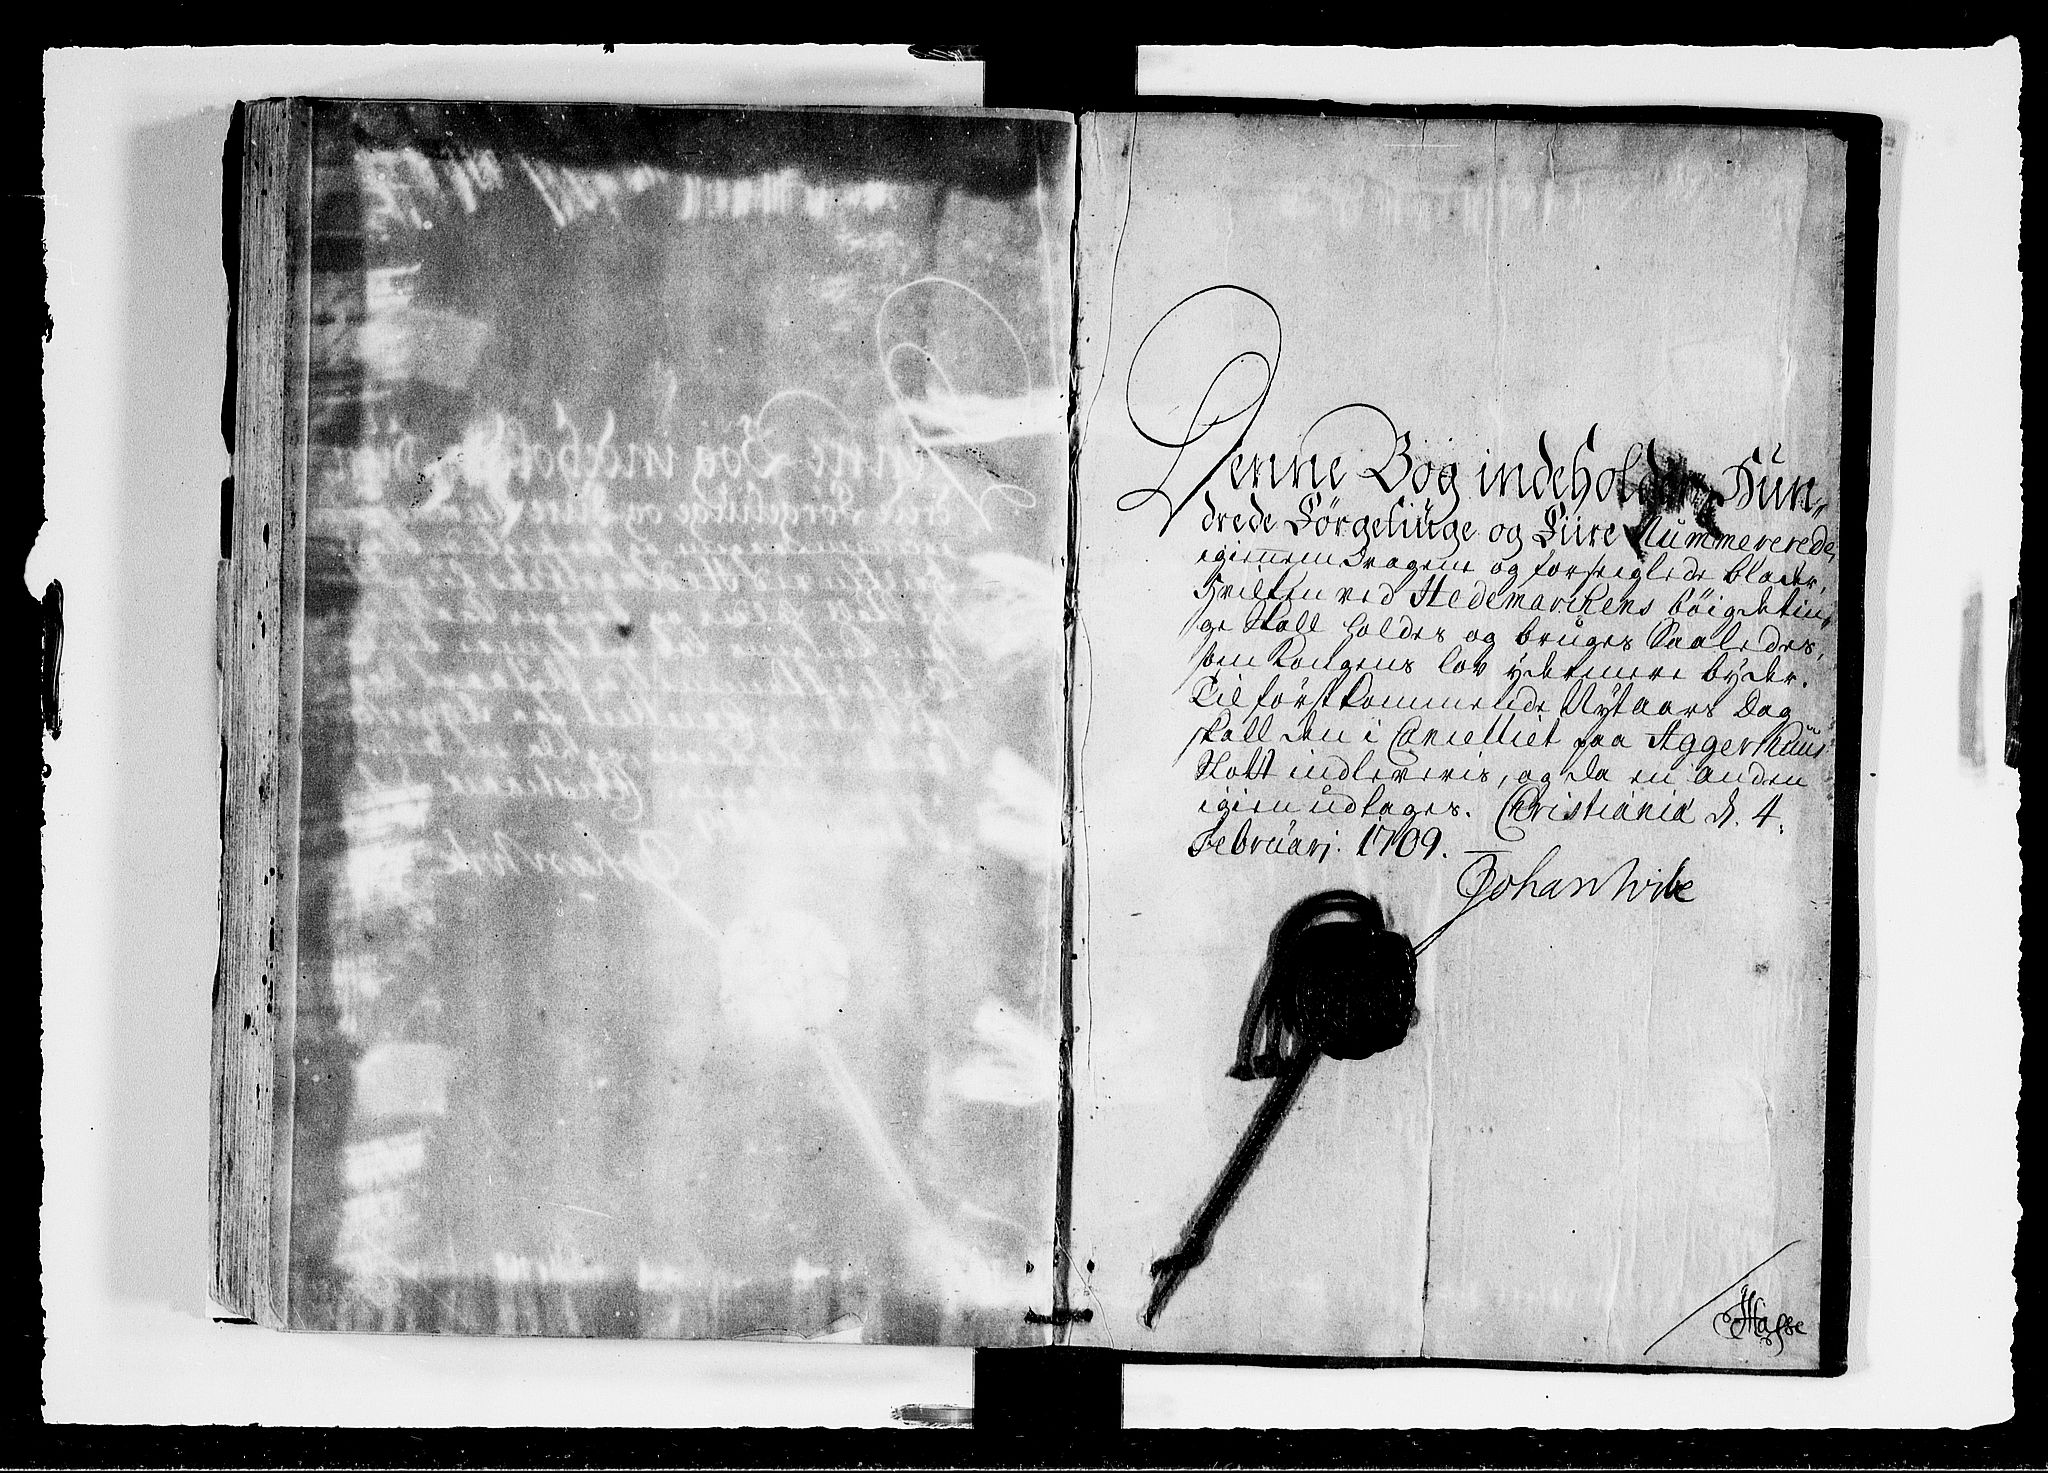 Denne Bog indeholder Hun„
drede Förgetiuge og Fiire Nummererede,
igiennemdragene og forseiglede blader,
Hvilken ved Hedemarckens böigdetin„
ge skall holdes og bruges saaledes,
som Kongens lov ydermere byder.
Til förstkommende Nytaars Dag
skall den i Cancelliet paa Aggershuus
Slott indleveris, og da en anden
igien udtages. Christiania d. 4.
Februarj: 1709.
Johan Wibe
JHasse